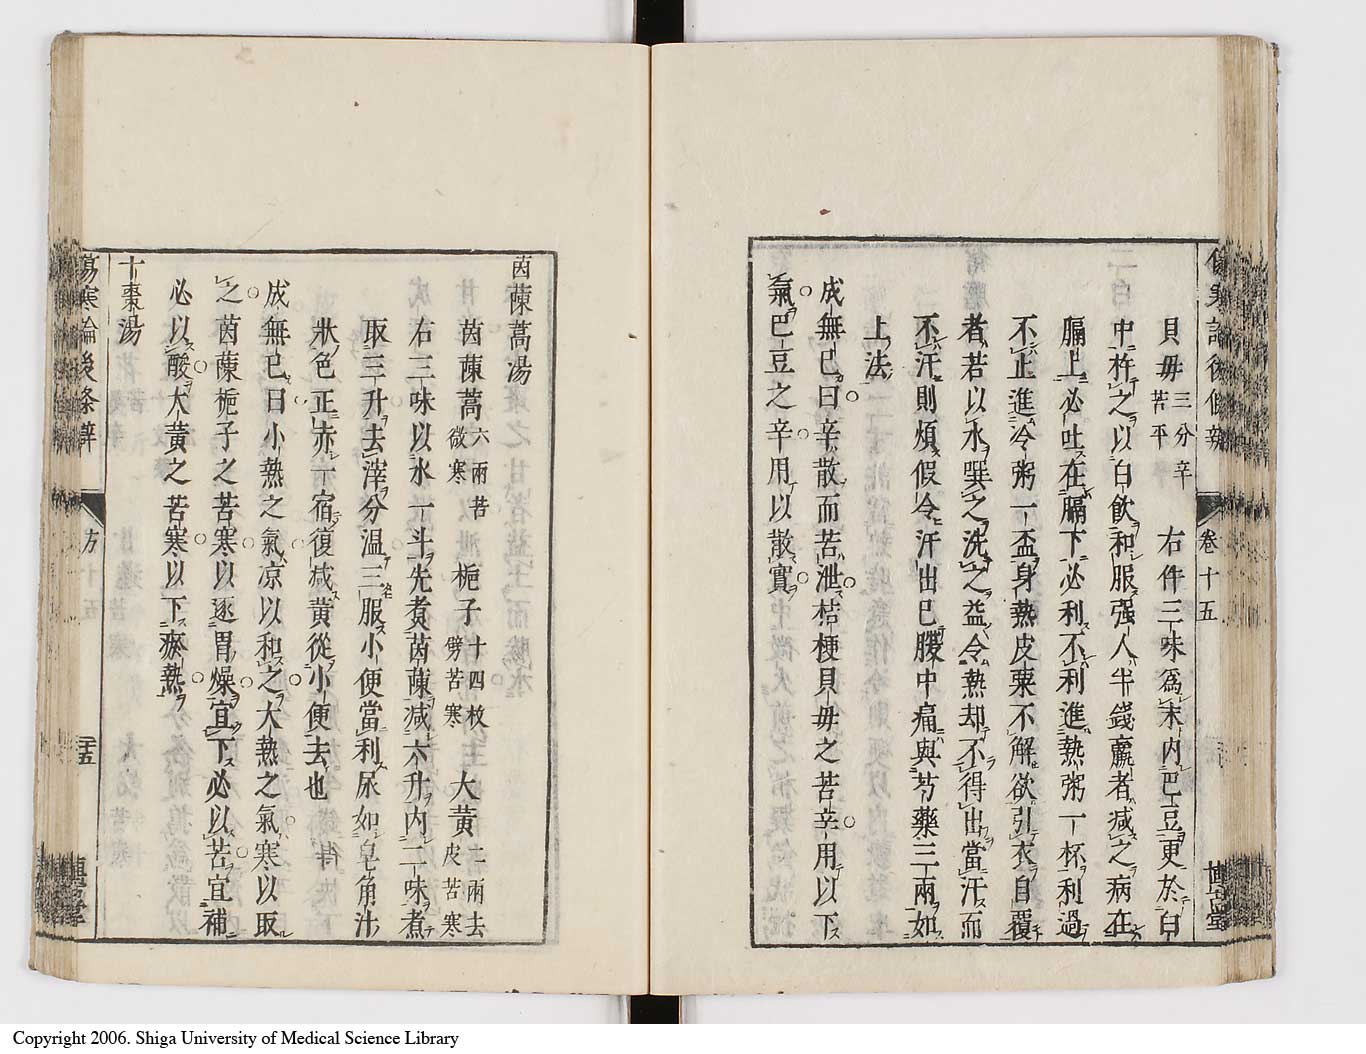 貝母三分辛苦平 右件三味爲末内巴豆更於臼
中杵之以白飲和服强人半錢羸者減之病在
膈上必吐在膈下必利不利進熱粥一杯利過
不止進冷粥一盃身熱皮粟不解欲引衣自覆
者若以水噀之洗之益令熱却不得出當汗而
不汗則煩假令汗出巳腹中痛與芍藥三兩如
上法
成無巳曰辛散而苦泄桔梗貝母之苦辛用以下
氣巴豆之辛用以散實
卷十五
博古堂
茵蔯蒿湯
茵蔯蒿六兩苦微寒 梔子十四枚劈苦寒 大黄二兩去皮苦寒
右三味以水一斗先煮茵蔯減六升内二味煮
取三升去滓分温三服小便當利尿如皂角汁
狀色正赤一宿復減黄從小便去也
成無巳曰小熱之氣凉以和之大熱之氣寒以取
之茵蔯梔子之苦寒以逐胃燥宜下必以苦宜補
必以酸大黄之苦寒以下瘀熱
十棗湯
傷寒論後条辨 方十五 二十五
Copyright 2006. Shiga University of Medical Science Library